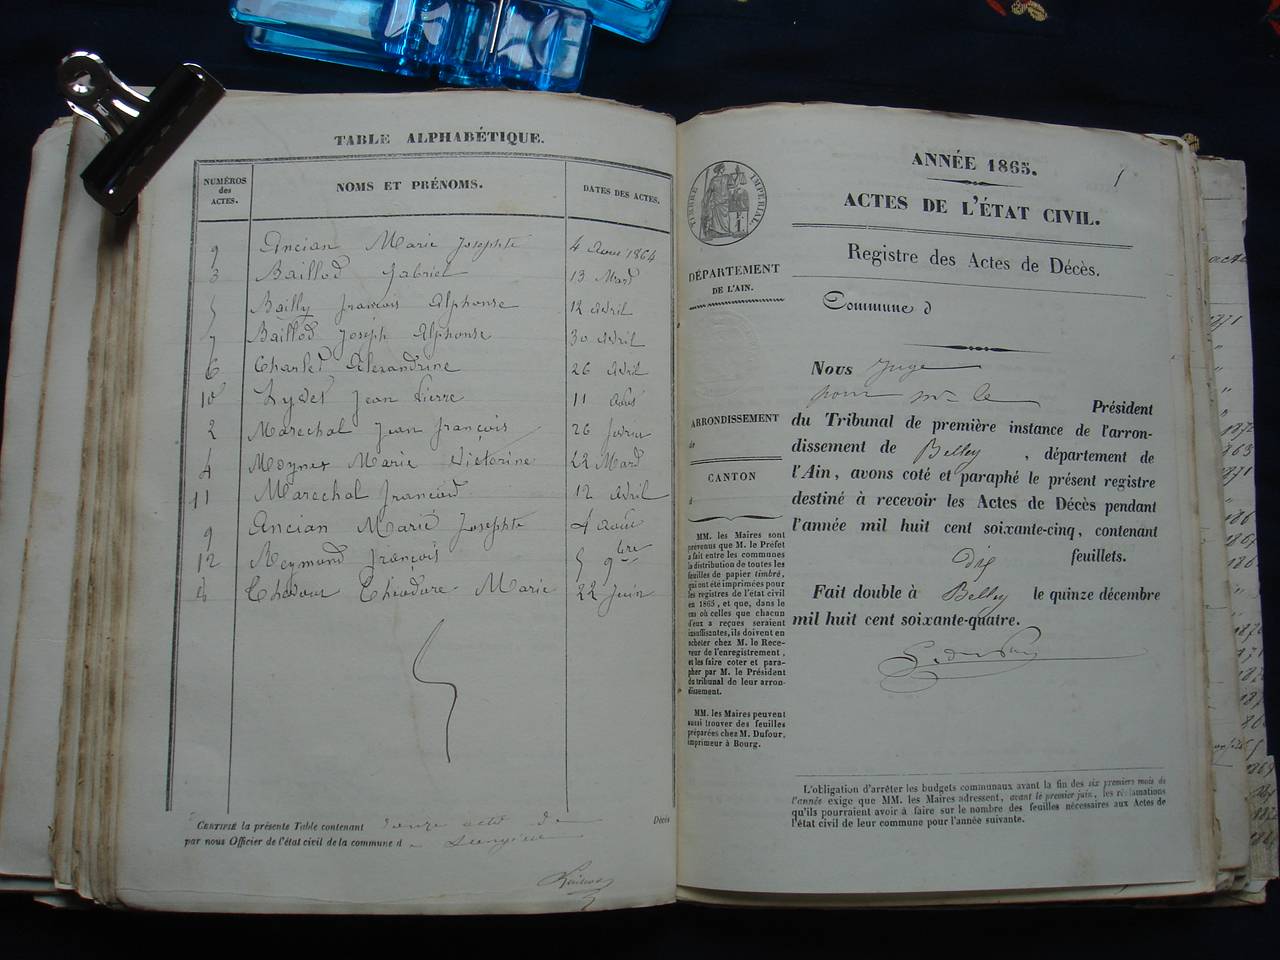 TABLE ALPHABÉTIQUE.
NUMÉROS
des
ACTES.
NOMS ET PRÉNOMS.
DATES DES ACTES.
9 Ancian Marie Josephte 4 Aout 1864
3 Baillod Gabriel 13 Mars
5 Bailly François Alphonse 12 Avril
7 Baillod Joseph Alphonse 30 Avril
6 Charlet Alexandrine 26 Avril
10 Jean Pierre 11 Août
2 Marechal Jean François 26
4 Marie Victorine 22 Mars
11 Marechal François 12 Avril
9 Ancian Marie Josephte 4 Août
12 Reymond François 5 9bre
8 Théodore Marie 22 Juin
CERTIFIÉ la présente Table contenant douze actes de Décès
par nous Officier de l'état civil de la commune d
TIMBRE IMPÉRIAL
1 F.
DÉPARTEMENT
DE L'AIN.
ARRONDISSEMENT
CANTON
MM. les Maires sont
prévenus que M. le Préfet
a fait entre les communes
la distribution de toutes les
feuilles de papier timbré,
qui ont été imprimées pour
les registres de l'état civil
en 1865, et que, dans le
cas où celles que chacun
d'eux a reçues seraient
insuffisantes, ils doivent en
acheter chez M. le Rece-
veur de l'enregistrement,
et les faire coter et para-
pher par M. le Président
du tribunal de leur arron-
dissement.
MM. les Maires peuvent
aussi trouver des feuilles
préparées chez M. Dufour,
imprimeur à Bourg.
1
ANNÉE 1865.
ACTES DE L'ÉTAT CIVIL.
Registre des Actes de Décès.
Commune d
Nous Juge
pour Mr le Président
du Tribunal de première instance de l'arron-
dissement de Belley, département de
l'Ain, avons coté et paraphé le présent registre
destiné à recevoir les Actes de Décès pendant
l'année mil huit cent soixante-cinq, contenant
dix feuillets.
Fait double à Belley le quinze décembre
mil huit cent soixante-quatre.
L'obligation d'arrêter les budgets communaux avant la fin des six premiers mois de
l'année exige que MM. les Maires adressent, avant le premier juin, les réclamations
qu'ils pourraient avoir à faire sur le nombre des feuilles nécessaires aux Actes de
l'état civil de leur commune pour l'année suivante.